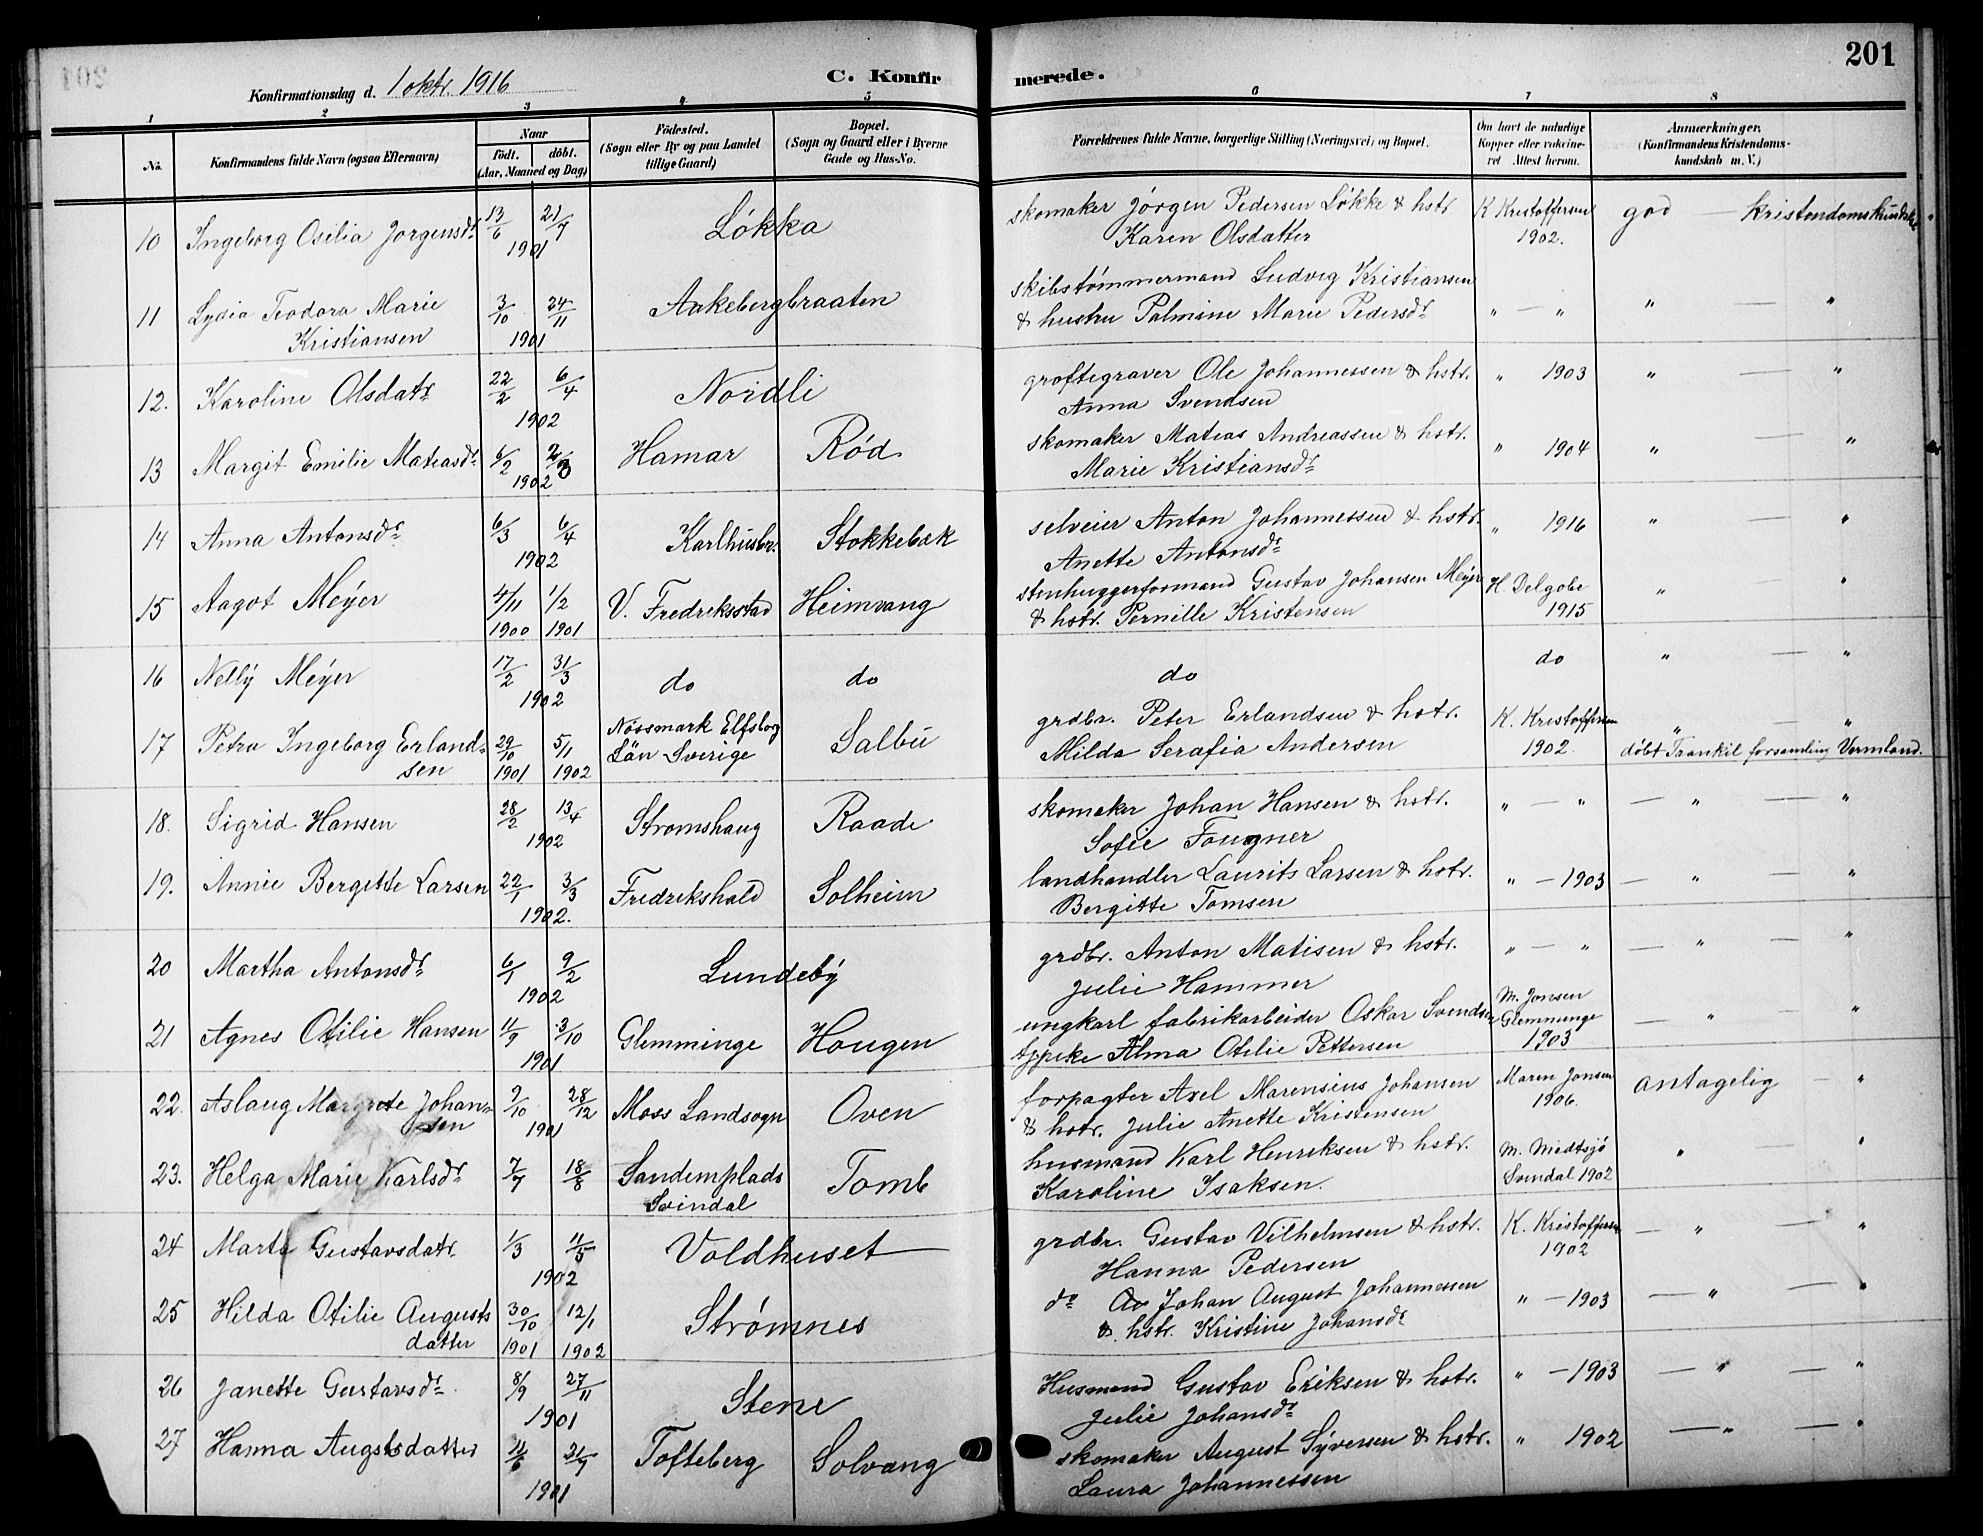 201
Konfirmationsdag d. 1 oktr. 1916
C. Konfirmerede.
1 2 3 4 5 6 7 8
No.
Konfirmandens fulde Navn (ogsaa Efternavn)
Naar
født. døbt.
(Aar, Maaned og Dag)
Fødested.
(Sogn eller By og paa Landet
tillige Gaard)
Bopæl.
(Sogn og Gaard eller i Byerne
Gade og Hus-No.
Forældrenes fulde Navne, borgerlige Stilling (Næringsvei) og Bopæl.
Om havt de naturlige
Kopper eller vakcine-
ret Attest herom.
Anmærkninger.
(Konfirmandens Kristendoms-
kundskab m. V.)
10 Ingeborg Osilia Jørgensdr. 13/6 21/7 Løkka skomaker Jørgen Pedersen Løkke & hstr. K Kristoffersen god — kristendomskundsk.
1901 Karen Olsdatter 1902.
11 Lydia Teodora Marie 3/10 24/11 Aakebergbraaten skibstømmermand Ludvig Kristiansen
Kristiansen 1901 & hustru Palmine Marie Pedersdr. " — " " — "
12. Karoline Olsdatr. 22/2 6/4 Nordli grøftegraver Ole Johannessen & hstr. " 1903 " — "
1902 Anna Svendsen
13 Margit Emilie Matiasdr. 6/2 2/3 Hamar Rød skomaker Matias Andreassen & hstr. " 1904 " — "
1902 Marie Kristiansdr.
14 Anna Antonsdr. 6/3 6/4 Karlhusbr. Stokkebæk selveier Anton Johannessen & hstr. " 1916 " — "
1902 Anette Antonsdr.
15 Aagot Meÿer 4/11 1/2 V. Fredriksstad Heimvang stenhuggerformand Gustav Johansen Meÿer H. Delgobe " — "
1900 1901 & hstr. Pernille Kristensen 1915
16 Nellÿ Meÿer 17/2 31/3 do do do do " — "
1902
17 Petra Ingeborg Erland- 29/10 5/1 Nössmark Elfsborg Salbu grdbr. Peter Erlandsen & hstr. K. Kristoffersen " — "
sen 1901 1902 Län Sverige Milda Serafia Andersen 1902. døbt Trankil forsamling Vermland.
18. Sigrid Hansen 28/2 13/4 Strømshaug Raade skomaker Johan Hansen & hstr. " — " — " — "
1902 Sofie Fougner
19. Annie Bergitte Larsen 22/1 3/3 Fredrikshald Solheim landhandler Laurits Larsen & hstr. " — 1903 — " — "
1902. Bergitte Tomsen
20 Martha Antonsdr. 6/1 9/2 Lundebÿ grdbr. Anton Matisen & hstr. " — " — " — "
1902 Julie Hammer
21 Agnes Otilie Hansen 11/9 3/10 Glemminge Hougen ungkarl fabrikarbeider Oskar Svendsen M. Jonsen Glemminge — " — "
1901 & pike Alma Otilie Pettersen 1903
22. Aslaug Margrete Johan- 9/10 28/12 Moss Landsogn Oven forpagter Axel Marensius Johansen Maren Jonsen antagelig — "
sen 1901 & hstr. Julie Anette Kristensen 1906.
23. Helga Marie Karlsdr. 7/7 18/8 Sandemplads Tomb husmand Karl Henriksen & hstr. M. Medtsjø " — "
Svindal Karoline Isaksen. Svendal 1902
24 Marta Gustavsdatr. 1/3 11/5 Voldhuset grdbr. Gustav Vilhelmsen & hstr. K. Kristoffersen — " — "
1902 Hanna Pedersen 1902
25 Hilda Otilie Augusts 30/10 12/1 Strømnes do Johan August Johannessen " — 1903 — " — "
datter 1901 1902 & hstr. Kristine Johansdr.
26 Janette Gustavsdr. 8/9 27/11 Stene Husmand Gustav Eriksen & hstr. " — 1903 — " — "
1901 Julie Johansdr.
27 Hanna Augstsdatter 11/6 21/7 Tofteberg Solvang skomaker August Sÿversen & hstr. " 1902 — " — "
1901 Laura Johannessen